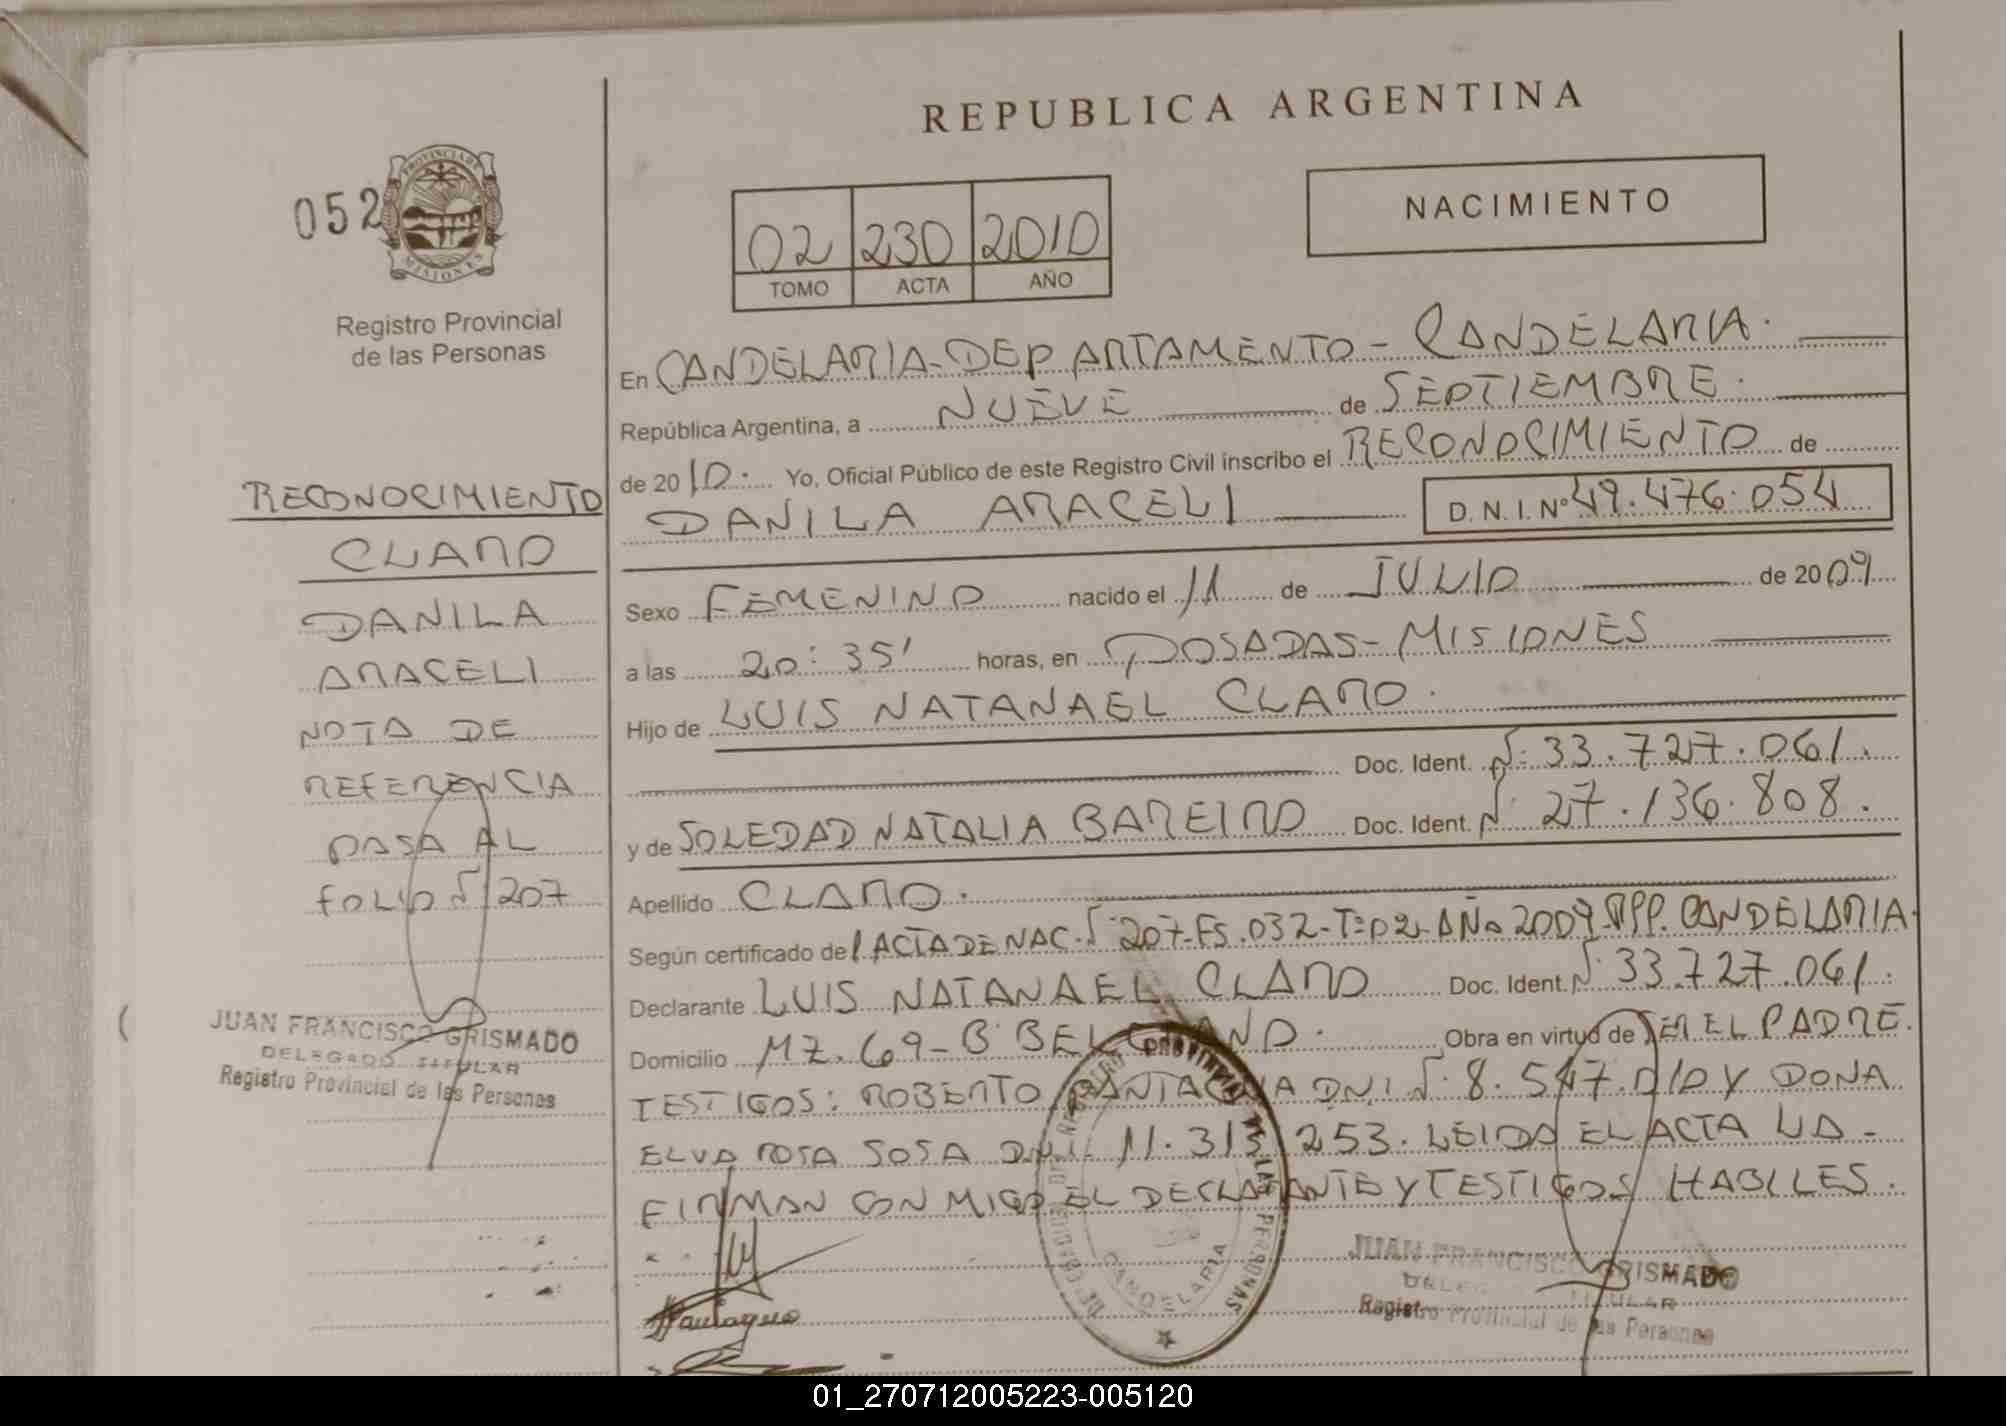 REPUBLICA ARGENTINA
NACIMIENTO
052
PROVINCIA DE
MISIONES
Registro Provincial
de las Personas
02 230 2010
TOMO ACTA AÑO
En CANDELARIA-DEPARTAMENTO - CANDELARIA.
República Argentina, a NUEVE de SEPTIEMBRE.
de 2010. Yo, Oficial Público de este Registro Civil inscribo el RECONOCIMIENTO de
DANILA ARACELI D.N.I. Nº 49.476.054
Sexo FEMENINO nacido el 11 de JULIO de 2009
a las 20:35' horas, en POSADAS-MISIONES
Hijo de LUIS NATANAEL CLARO.
Doc. Ident. Nº 33.727.061.
y de SOLEDAD NATALIA BAREIRO Doc. Ident. Nº 27.136.808.
Apellido CLARO.
Según certificado del ACTA DE NAC. Nº 207-Fs.032-Tº02-AÑO 2009-RPP. CANDELARIA.
Declarante LUIS NATANAEL CLARO Doc. Ident. Nº 33.727.061.
Domicilio MZ. 69-Bº BELGRANO. Obra en virtud de SER EL PADRE.
TESTIGOS: ROBERTO DNI Nº 8.547.010 Y DOÑA
ELVA ROSA SOSA DNI 11.313.253. LEIDA EL ACTA LA
FIRMAN CONMIGO EL DECLARANTE Y TESTIGOS HABILES.
JUAN FRANCISCO GRISMADO
DELEGADO TITULAR
Registro Provincial de las Personas
CANDELARIA
RECONOCIMIENTO
CLARO
DANILA
ARACELI
NOTA DE
REFERENCIA
PASA AL
FOLIO Nº 207
JUAN FRANCISCO GRISMADO
DELEGADO TITULAR
Registro Provincial de las Personas
01_270712005223-005120